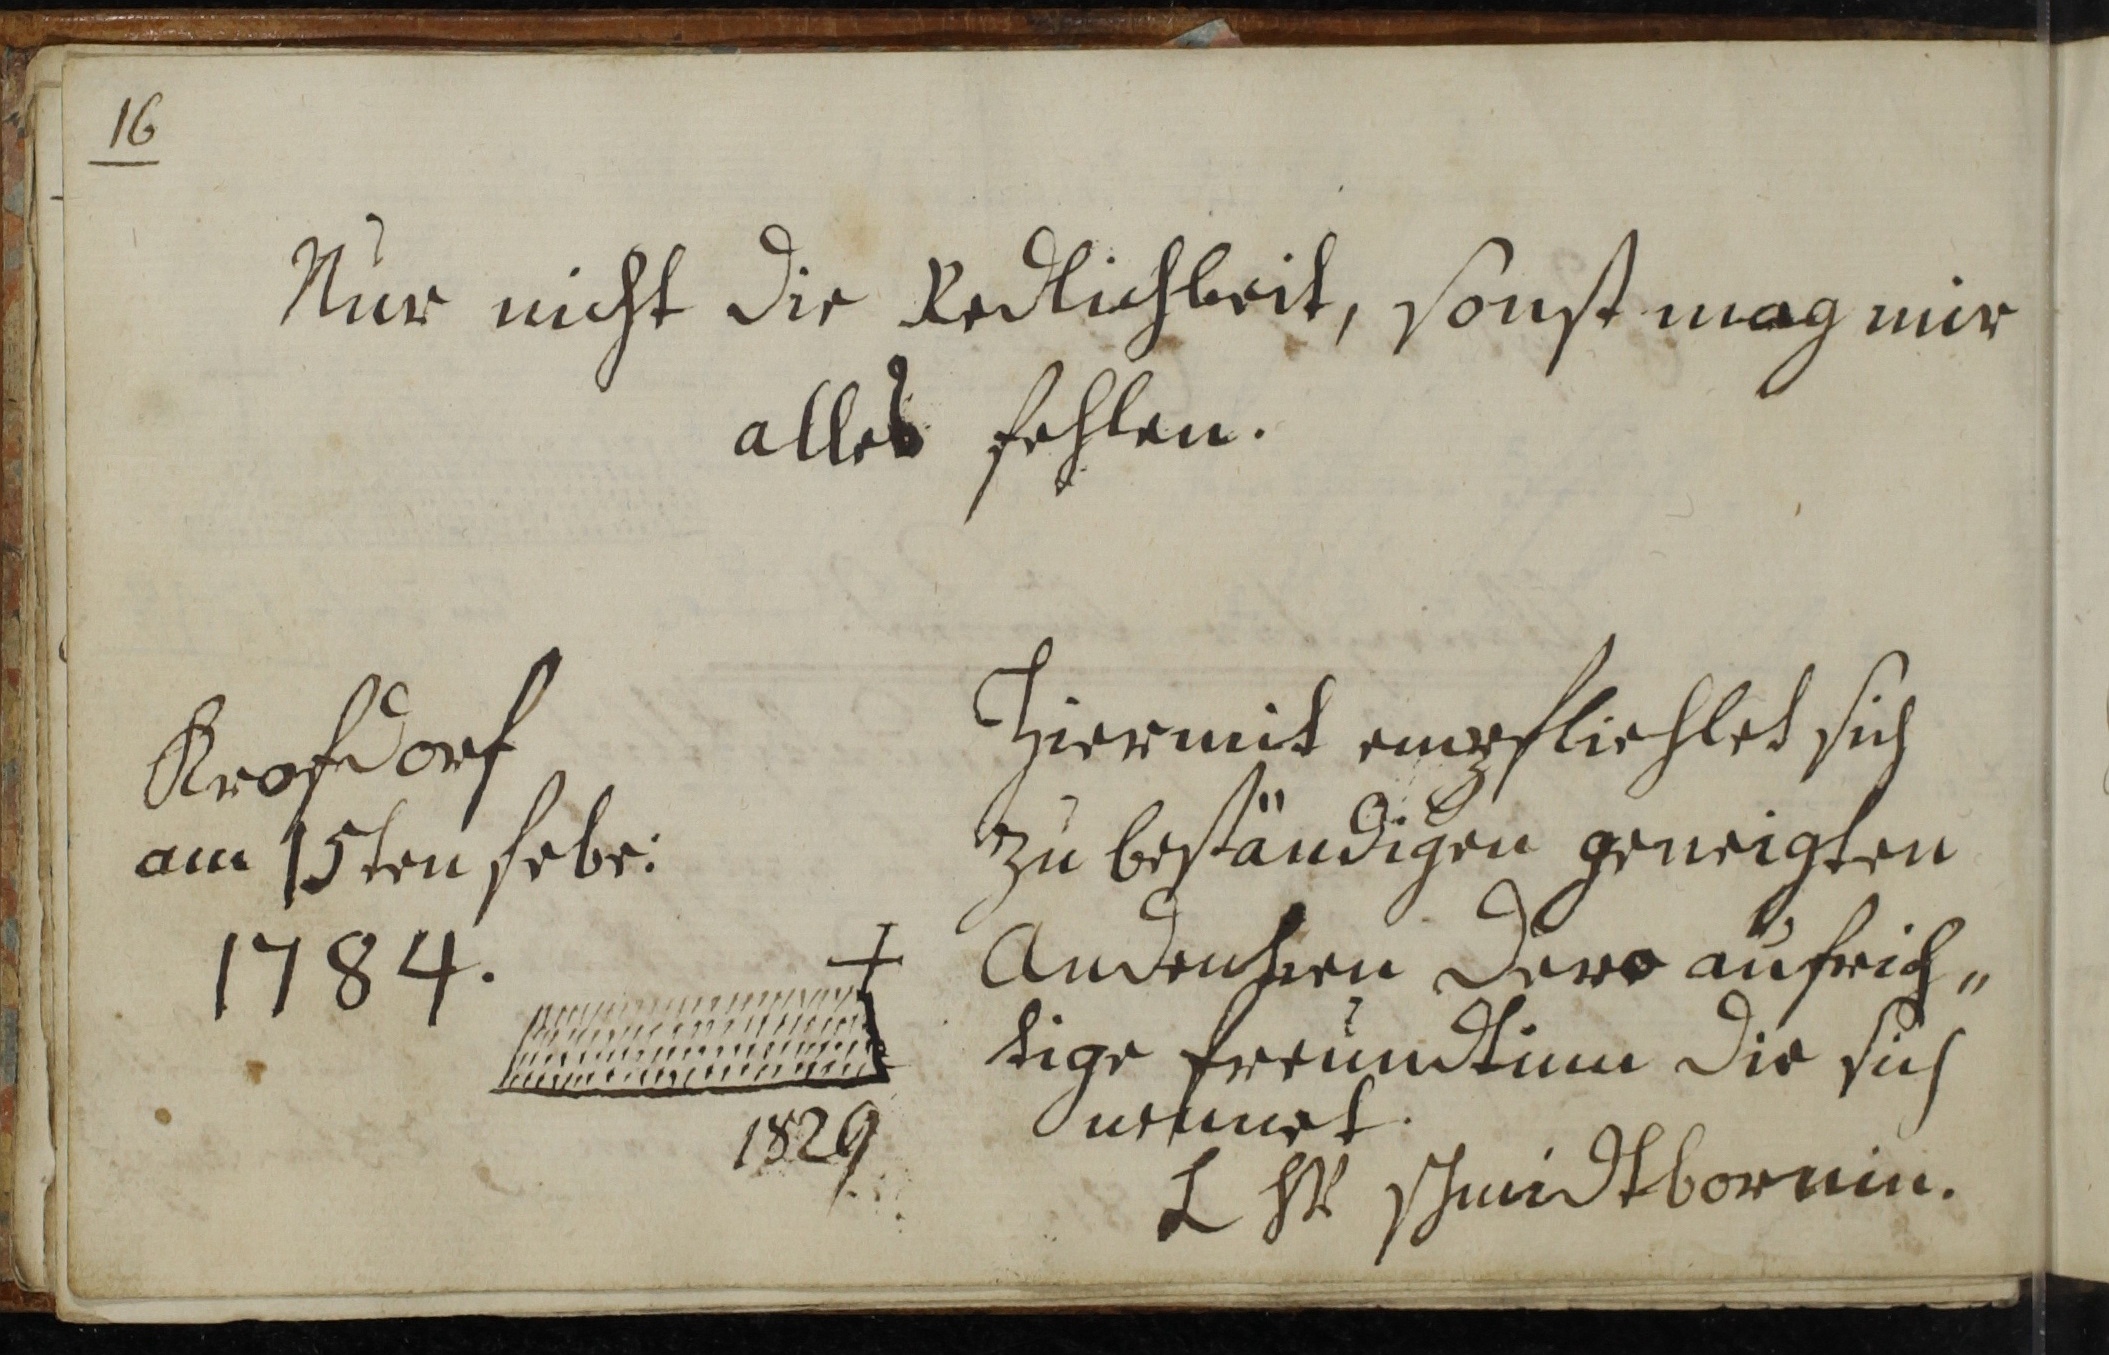 16
Nur nicht die Redlichkeit, sonst mag mir
alles fehlen.
Krofdorf
am 15ten febr:
1784.
1829
Hiermit empfliehlet sich
zu beständigen geneigten
Andencken dero aufrich„
tige freundtinn die sich
nennet.
L schmidtbornin.